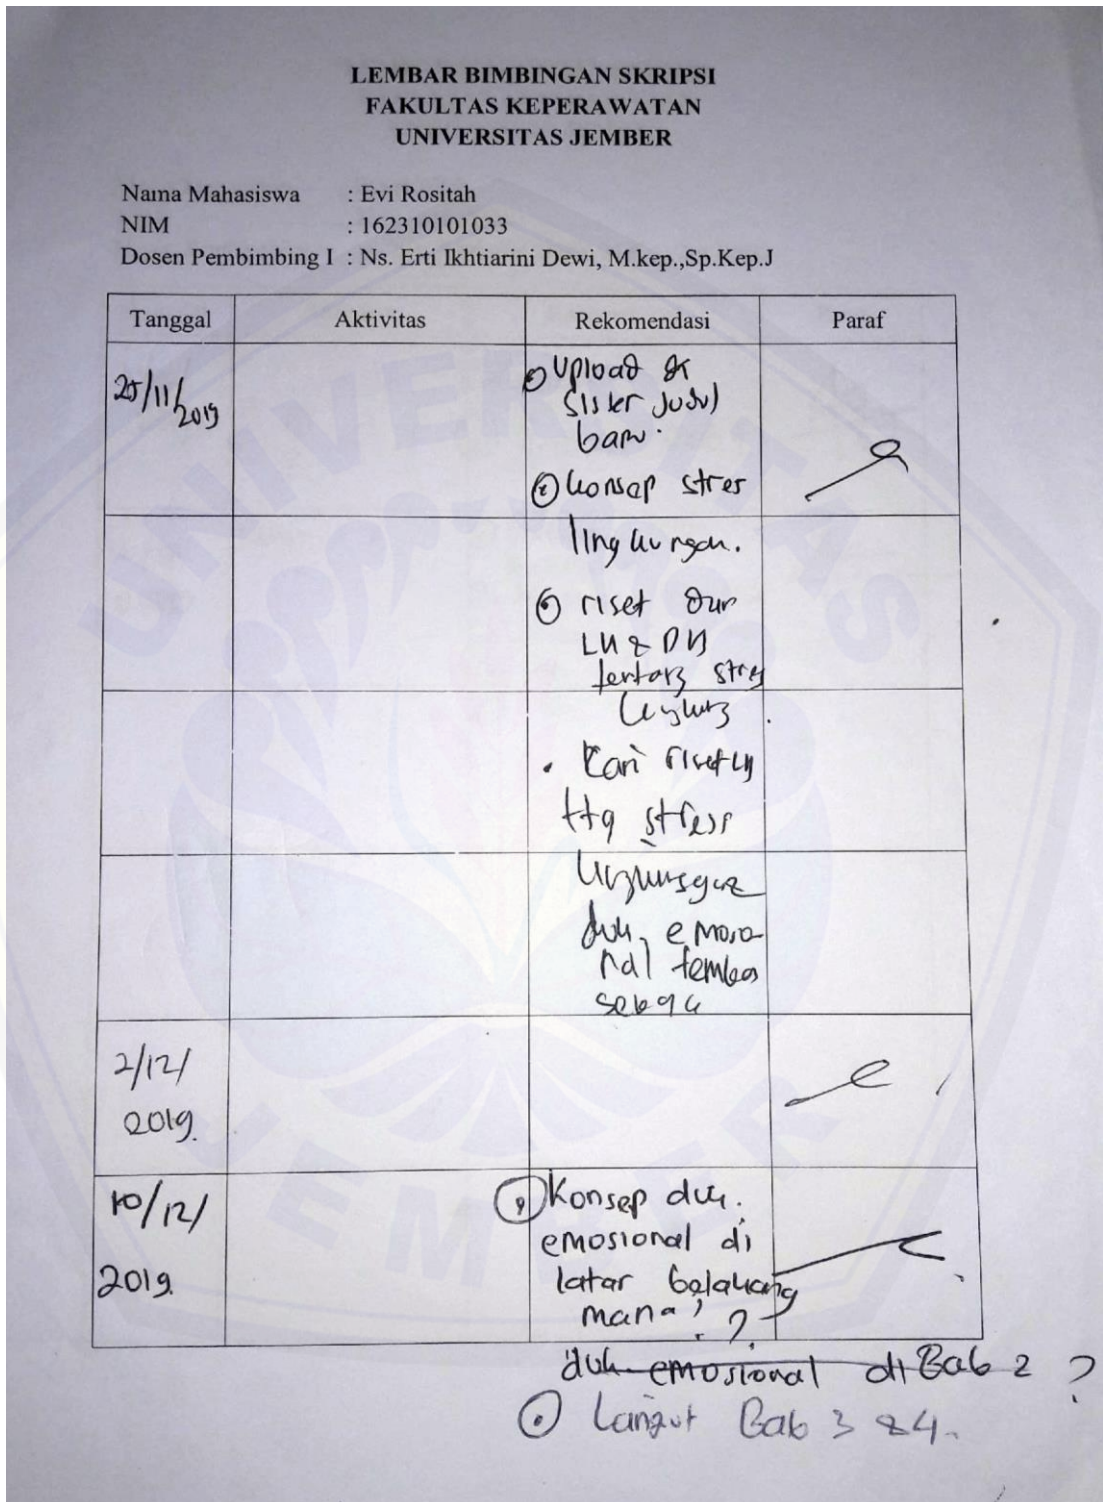 LEMBAR BIMBINGAN SKRIPSI
FAKULTAS KEPERAWATAN
UNIVERSITAS JEMBER
Nama Mahasiswa : Evi Rositah
NIM : 162310101033
Dosen Pembimbing I : Ns. Erti Ikhtiarini Dewi, M.kep.,Sp.Kep.J
Tanggal Aktivitas Rekomendasi Paraf
25/11/2019
Upload di
Sister Judul
baru.
Konsep stres
lingkungan.
riset
LN & DN
tentang stres
. Cari
ttg stress
duk. emosio
nal
sebaga
2/12/
2019.
10/12/
2019.
Konsep duk.
emosional di
latar belakang
mana?
duk. emosional di Bab 2 ?
Lanjut Bab 3 & 4.
UNIVERSITAS
JEMBER